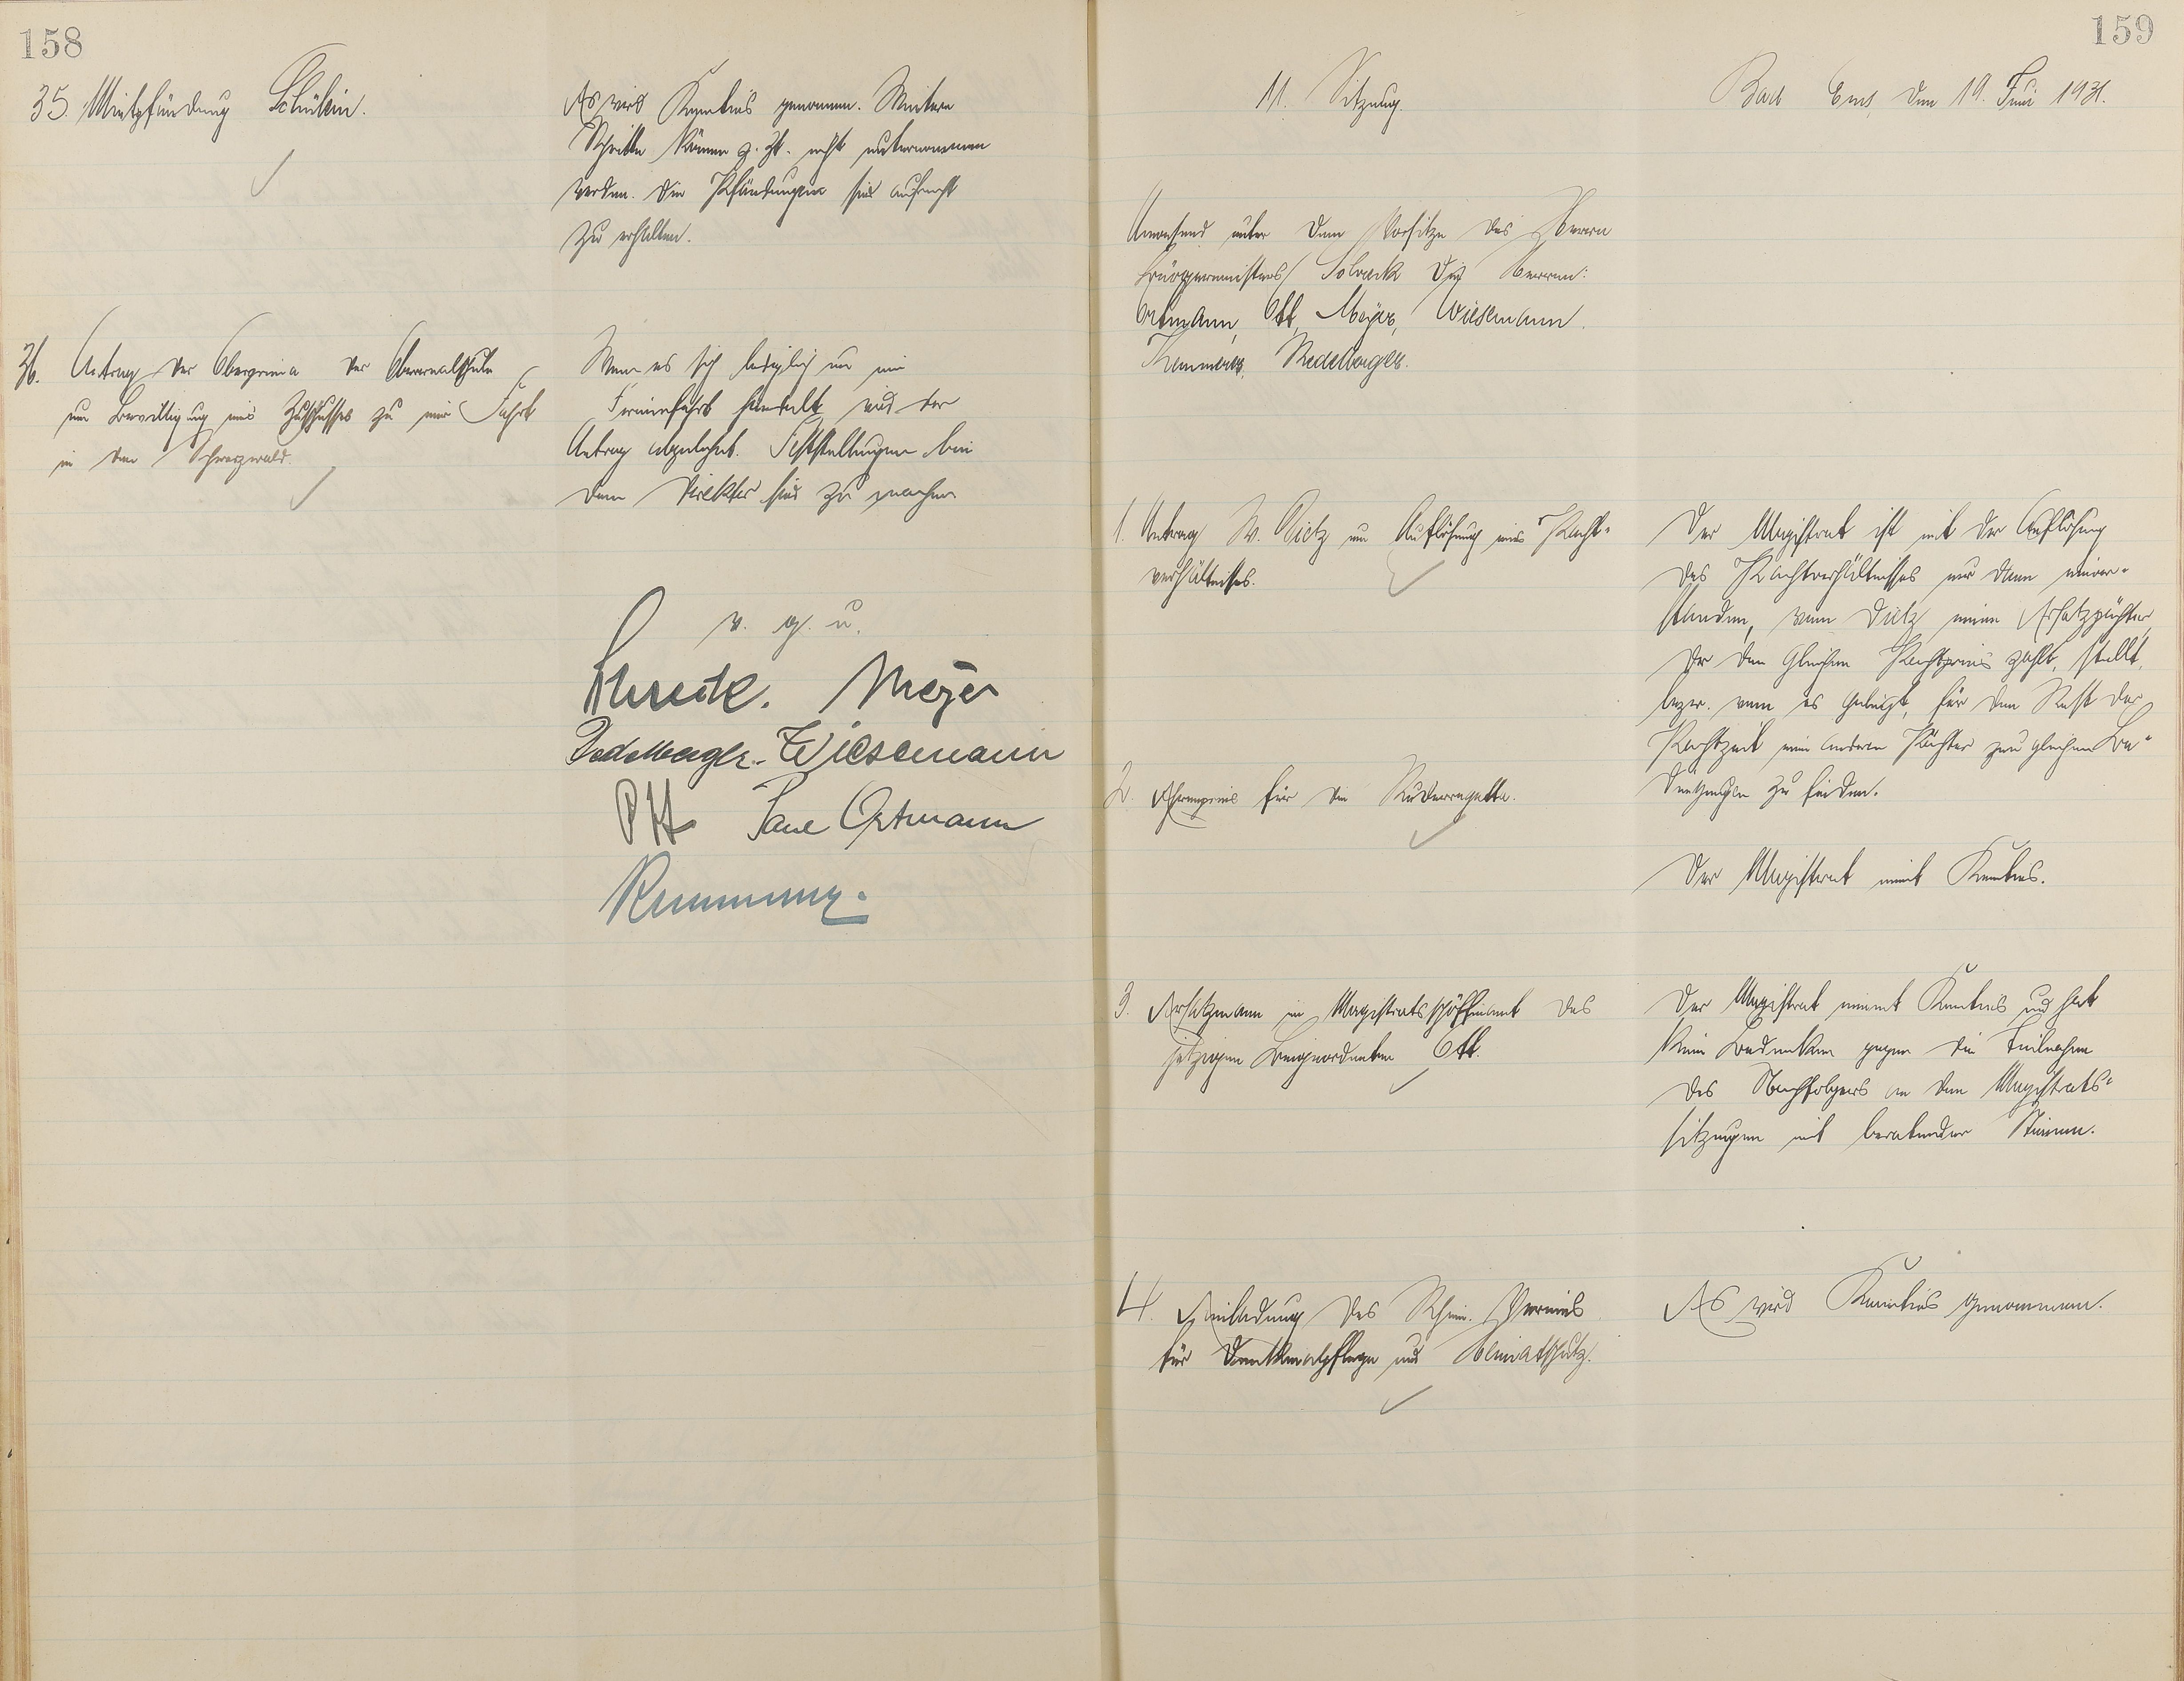 158
35. Mietpfändung Schülein.
Es wird Kenntnis genommen. Weitere
Schritte können z. Zt. nicht unternommen
werden. Die Pfändungen sind aufrecht
zu erhalten.
36. Antrag der Oberprima der Oberrealschule
um Bewilligung eines Zuschusses zu einer Fahrt
in den Schwarzwald.
Wenn es sich lediglich um eine
Ferienfahrt handelt, wird der
Antrag abgelehnt. Feststellungen bei
dem Direktor sind zu machen
v. g. u.
Meyer
Wiesemann
Ott Paul Ortmann
159
11. Sitzung.
Bad Ems, den 19. Juni 1931.
Anwesend unter dem Vorsitze des Herrn
Bürgermeisters die Herren:
Ortmann, Ott, Meyer, Wiesemann,
1. Antrag W. Dietz um Auflösung eines Pacht-
verhältnisses.
Der Magistrat ist mit der Auflösung
des Pachtverhältnisses nur dann einver-
standen, wenn Dietz einen Ersatzpächter,
der den gleichen Pachtpreis zahlt, stellt,
bezw. wenn es gelingt, für den Rest der
Pachtzeit einen anderen Pächter zu gleichen Be-
dingungen zu finden.
2. Ehrenpreis für die Ruderregatta.
Der Magistrat nimmt Kenntnis.
3. Ersatzmann im Magistratsschöffenamt des
jetzigen Beigeordneten Ott.
Der Magistrat nimmt Kenntnis und hat
kein Bedenken gegen die Teilnahme
des Nachfolgers an den Magistrats-
sitzungen mit beratender Stimme.
4. Einladung des Rhein. Vereins
für Denkmalpflege und Heimatschutz.
Es wird Kenntnis genommen.